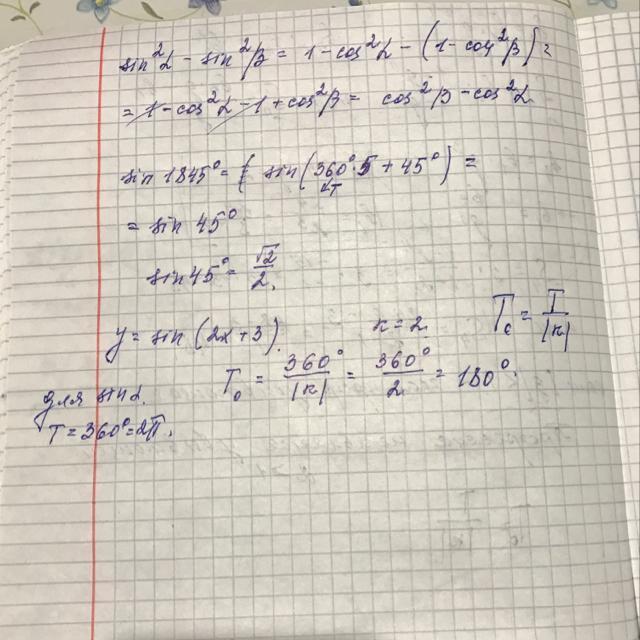 sin²α - sin²β = 1 - cos²α - (1 - cos²β) =
= 1 - cos²α - 1 + cos²β = cos²β - cos²α
sin 1845° = ( sin(360°·5 + 45°) =
= sin 45°
sin 45° = √2/2.
y = sin (2x+3). k = 2 T₀ = T/|k|
T₀ = 360°/|k| = 360°/2 = 180°.
для sin α.
T = 360° = 2π.